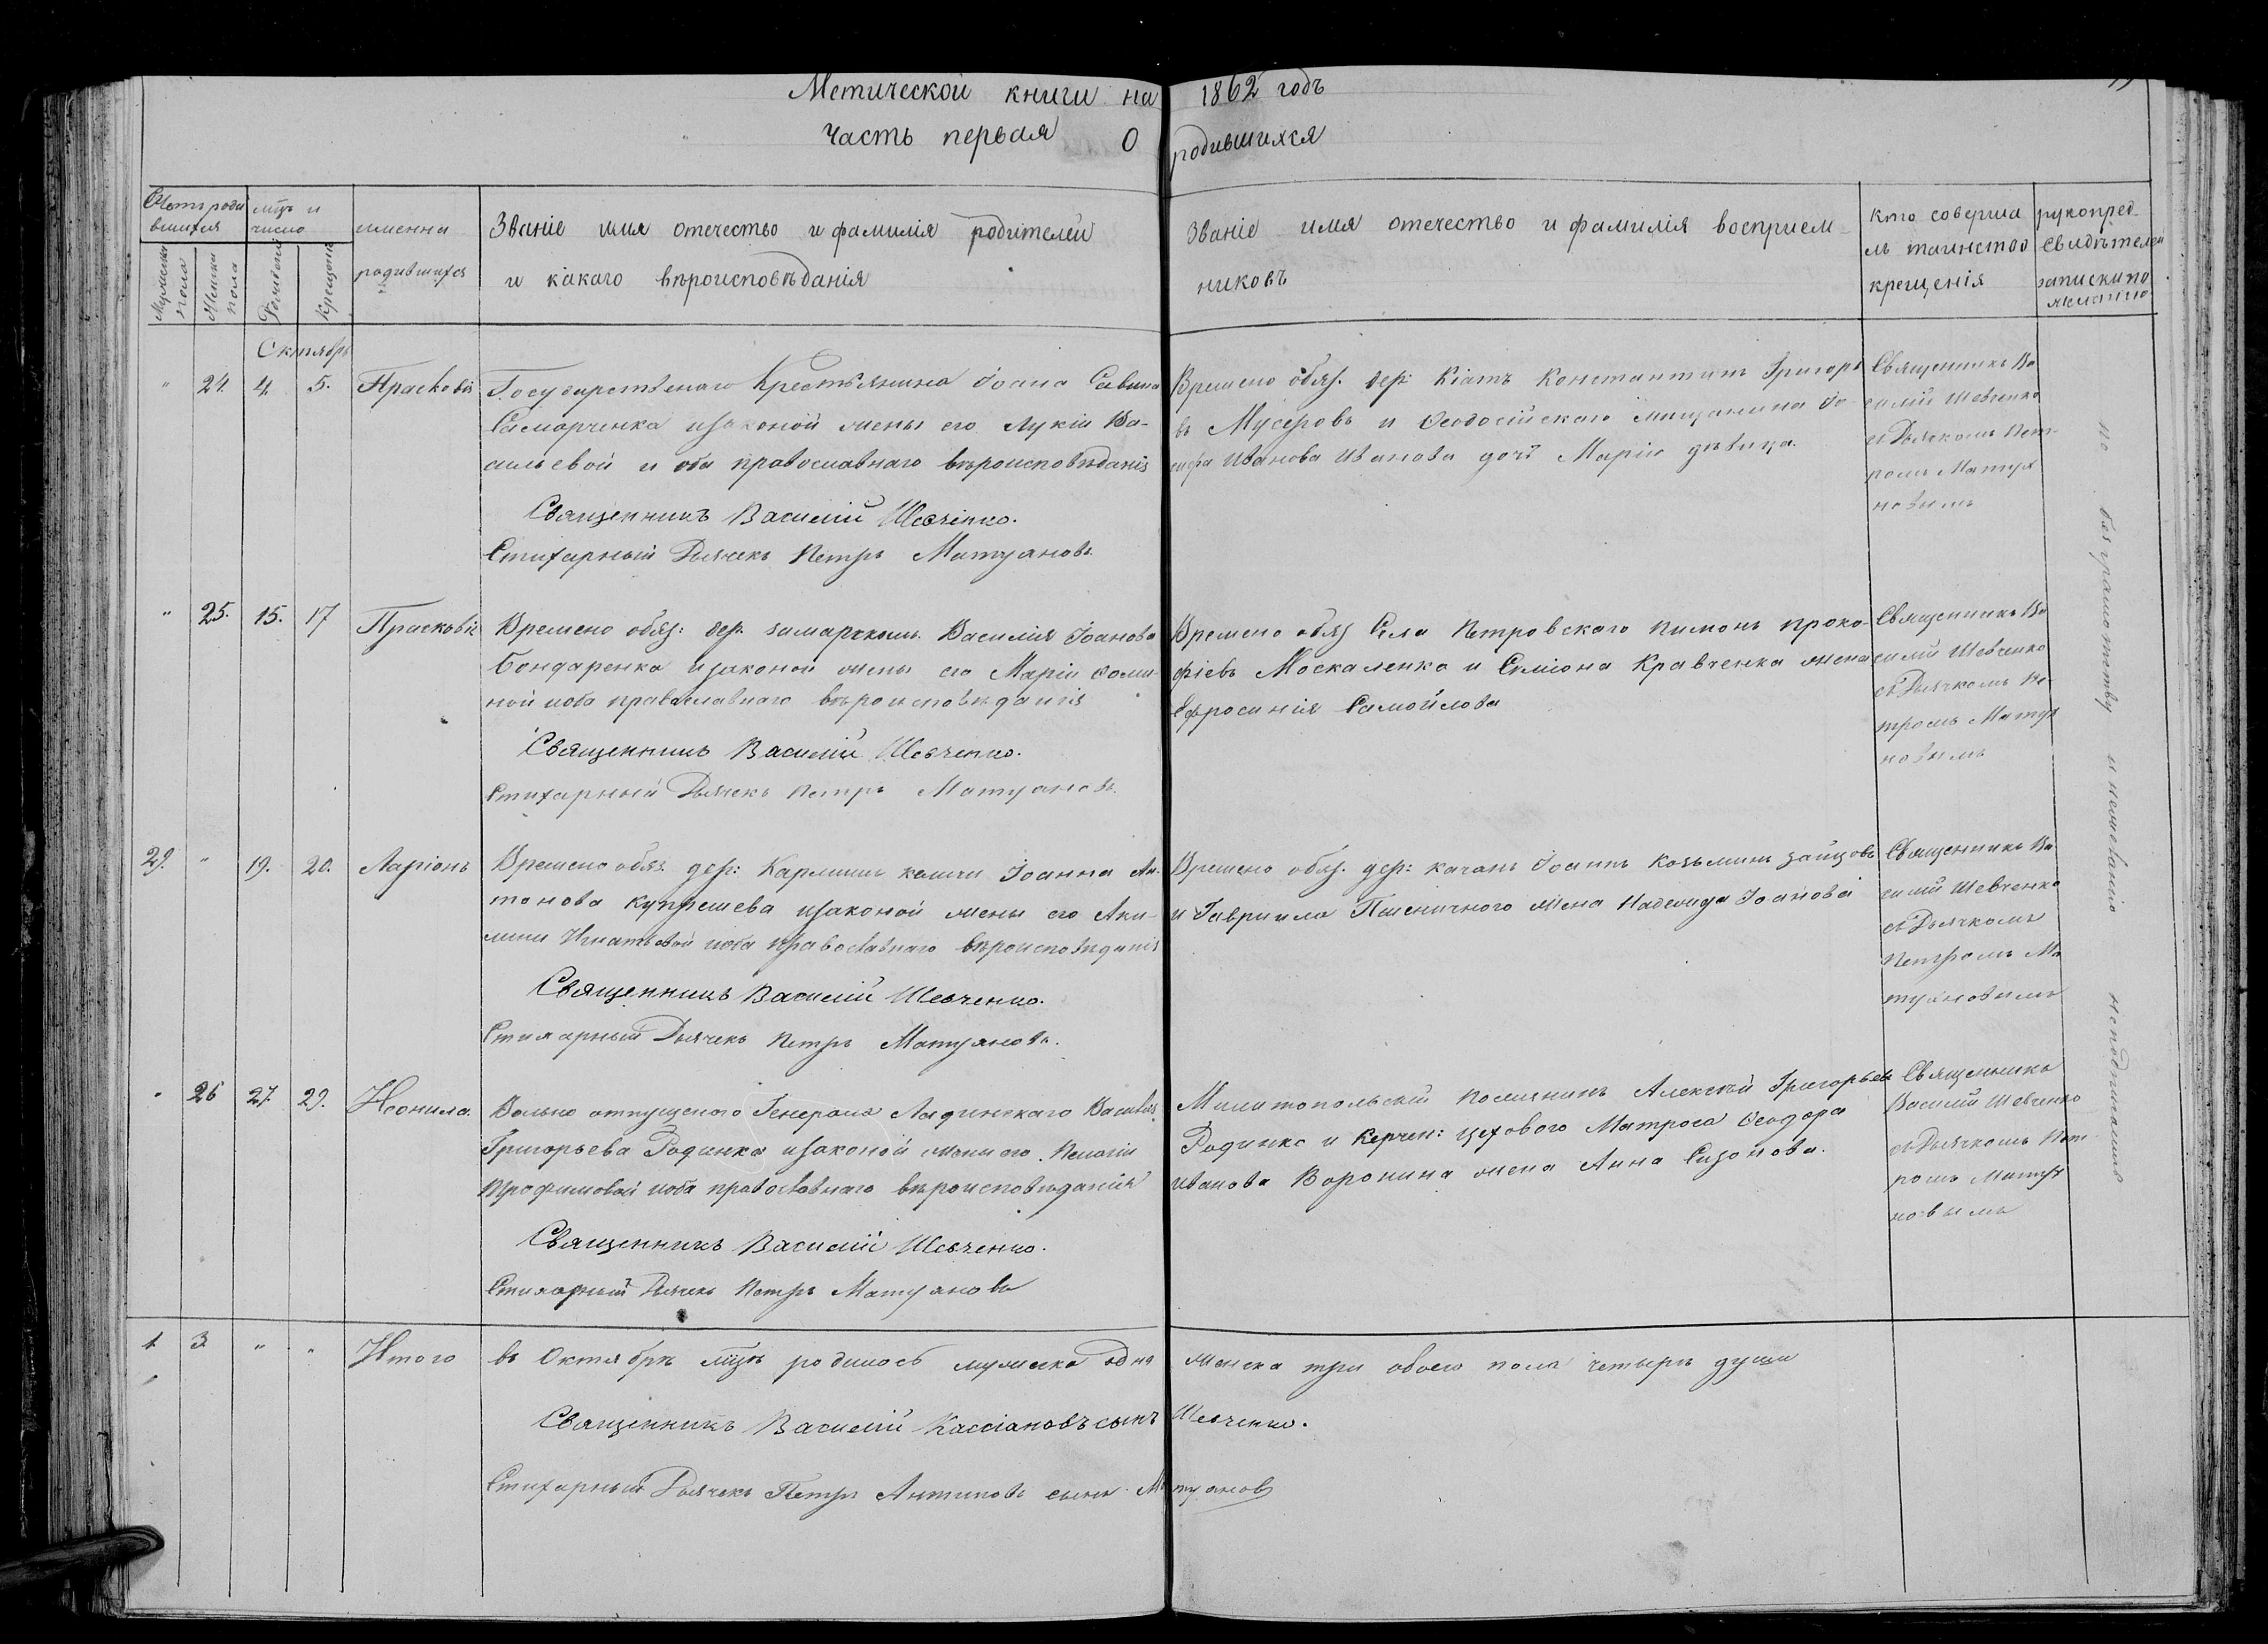 Метической книги на 1862 годъ
часть первая О родившихся
Счетъ роди
вшихся
мцъ и
число
именна
родившихся
Званіе имя отечество и фамилія родителей
и какаго вѣроисповѣданія
Званіе имя отечество и фамилія восприем-
никовъ
Кто соверша
лъ таинство
крещенія
рукопред-
свидѣтелей
записки по
желанію
Мужеска пола
Женска пола
Рожденія
Крещенія
Октябрь
" 24. 4. 5. Прасковія
Государственаго Крестьянина Іоана Савина
Самарченка изаконой жены его Лукіи Ва-
сильевой и оба православнаго вѣроисповѣданія
Священникъ Василій Шевченко.
Стихарный Дьячекъ Петръ Матуановъ
Времено обяз. дер: Кіатъ Константинъ Григорь
въ Мусеровъ и Ѳеодосійскаго мищанина Іо-
сифа Иванова Иванова дочь Марія дѣвица.
Священникъ Ва
силій Шевченко
съ Дьячкомъ Пет-
ромъ Матуа
новымъ
" 25. 15. 17 Прасковія
Времено обяз: дер. Василія Іоанова
Бондаренка изаконой жены его Маріи Ѳоми-
ной иоба православнаго вѣроисповѣданія
Священникъ Василій Шевченко.
Стихарный Дьячекъ Петръ Матуановъ.
Времено обяз Села Петровского Пимонъ Проко-
фіевъ Москаленко и Семіона Кравченка жена
Ефросинія Самойлова
Священникъ Ва
силій Шевченко
съ Дьячкомъ Пе
тромъ Матуа
новымъ
29. " 19. 20. Ларіонъ
Времено обяз. дер: Іоанна Ан-
тонова Купрешева изаконой жены его Аки-
лини Игнатьевой иоба православнаго вѣроисповѣданія
Священникъ Василій Шевченко.
Стихарный Дьячекъ Петръ Матуановъ.
Времено обяз. дер: качанъ Іоаннъ Козьминъ Зайцовъ
и Гавриила Пшеничного жена Надежда Іоанова
Священникъ Ва
силій Шевченко
съ Дьячкомъ
Петромъ Ма
туановымъ
" 26 27. 29. Неонила.
Вольно отпущеного Генерала Ладинскаго Василія
Григорьева Родинка изаконой жены его Пелагіи
Трофимовой иоба православнаго вѣроисповѣданія
Священникъ Василій Шевченко.
Стихарный Дьячекъ Петръ Матуановъ
Милитопольскій Поселянинъ Алексѣй Григорьевъ
Родинко и Керчен: цехового Матроса Ѳеодора
Иванова Воронина жена Анна Сизонова.
Священникъ
Василій Шевченко
съ Дьячкомъ Пет-
ромъ Матуа
новымъ
по безграмотству и нежеланію неподписались
1 3 " " Итого
въ Октябрѣ мцѣ родилось мужеска одна женска три обоего пола четырѣ души
Священникъ Василій Кассіановъ сынъ Шевченко.
Стихарный Дьячекъ Петръ Антиповъ сынъ Матуановъ